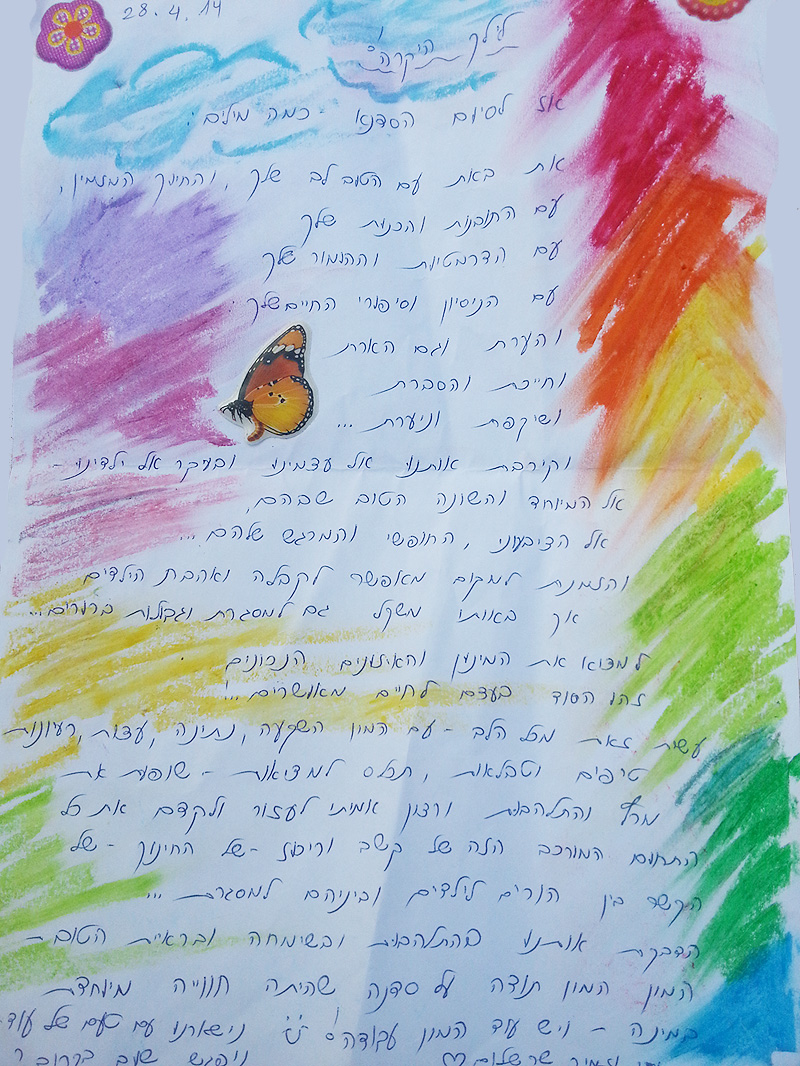 28.4.14
לילך היקרה!
אז לסיום הסדנא - כמה מילים:
את באת עם הטוב לב שלך, והחיוך המזמין,
עם התובנות והכנות שלך
עם הדרמטיות וההומור שלך
עם הניסיון וסיפורי החיים שלך
והערת וגם הארת
וחייכת והסברת
ושיקפת וניערת ...
וקירבת אותנו אל עצמינו ובעיקר אל ילדינו -
אל המיוחד והשונה הטוב שבהם,
אל הציבעוני, החופשי והמרגש שלהם ...
והזמנת למקום מאפשר לקבלה ואהבת הילדים
אך באותו משקל גם למסגרת וגבולות ברורים...
למצוא את המינון והאיזונים הנכונים
זהו הסוד בעצם לחיים מאושרים...!
עשית זאת מכל הלב - עם המון השקעה, נתינה, עצות, רעיונות
טיפים וטבלאות, תכלס למציאות - שופעת את
מרץ והתלהבות ורצון אמיתי לעזור ולקדם את כל
התחום המורכב הזה של קשב וריכוז - של החינוך - של
הקשר בין הורים לילדים וביניהם למסגרת ...
הדבקת אותנו בהתלהבות ובשימחה ובראיית הטוב -
המון המון תודה על סדנה שהיתה חווייה מיוחדת
במינה - ויש עוד המון עבודה! נישארנו עם טעם של עוד
שלום ♡ וניפגש שוב